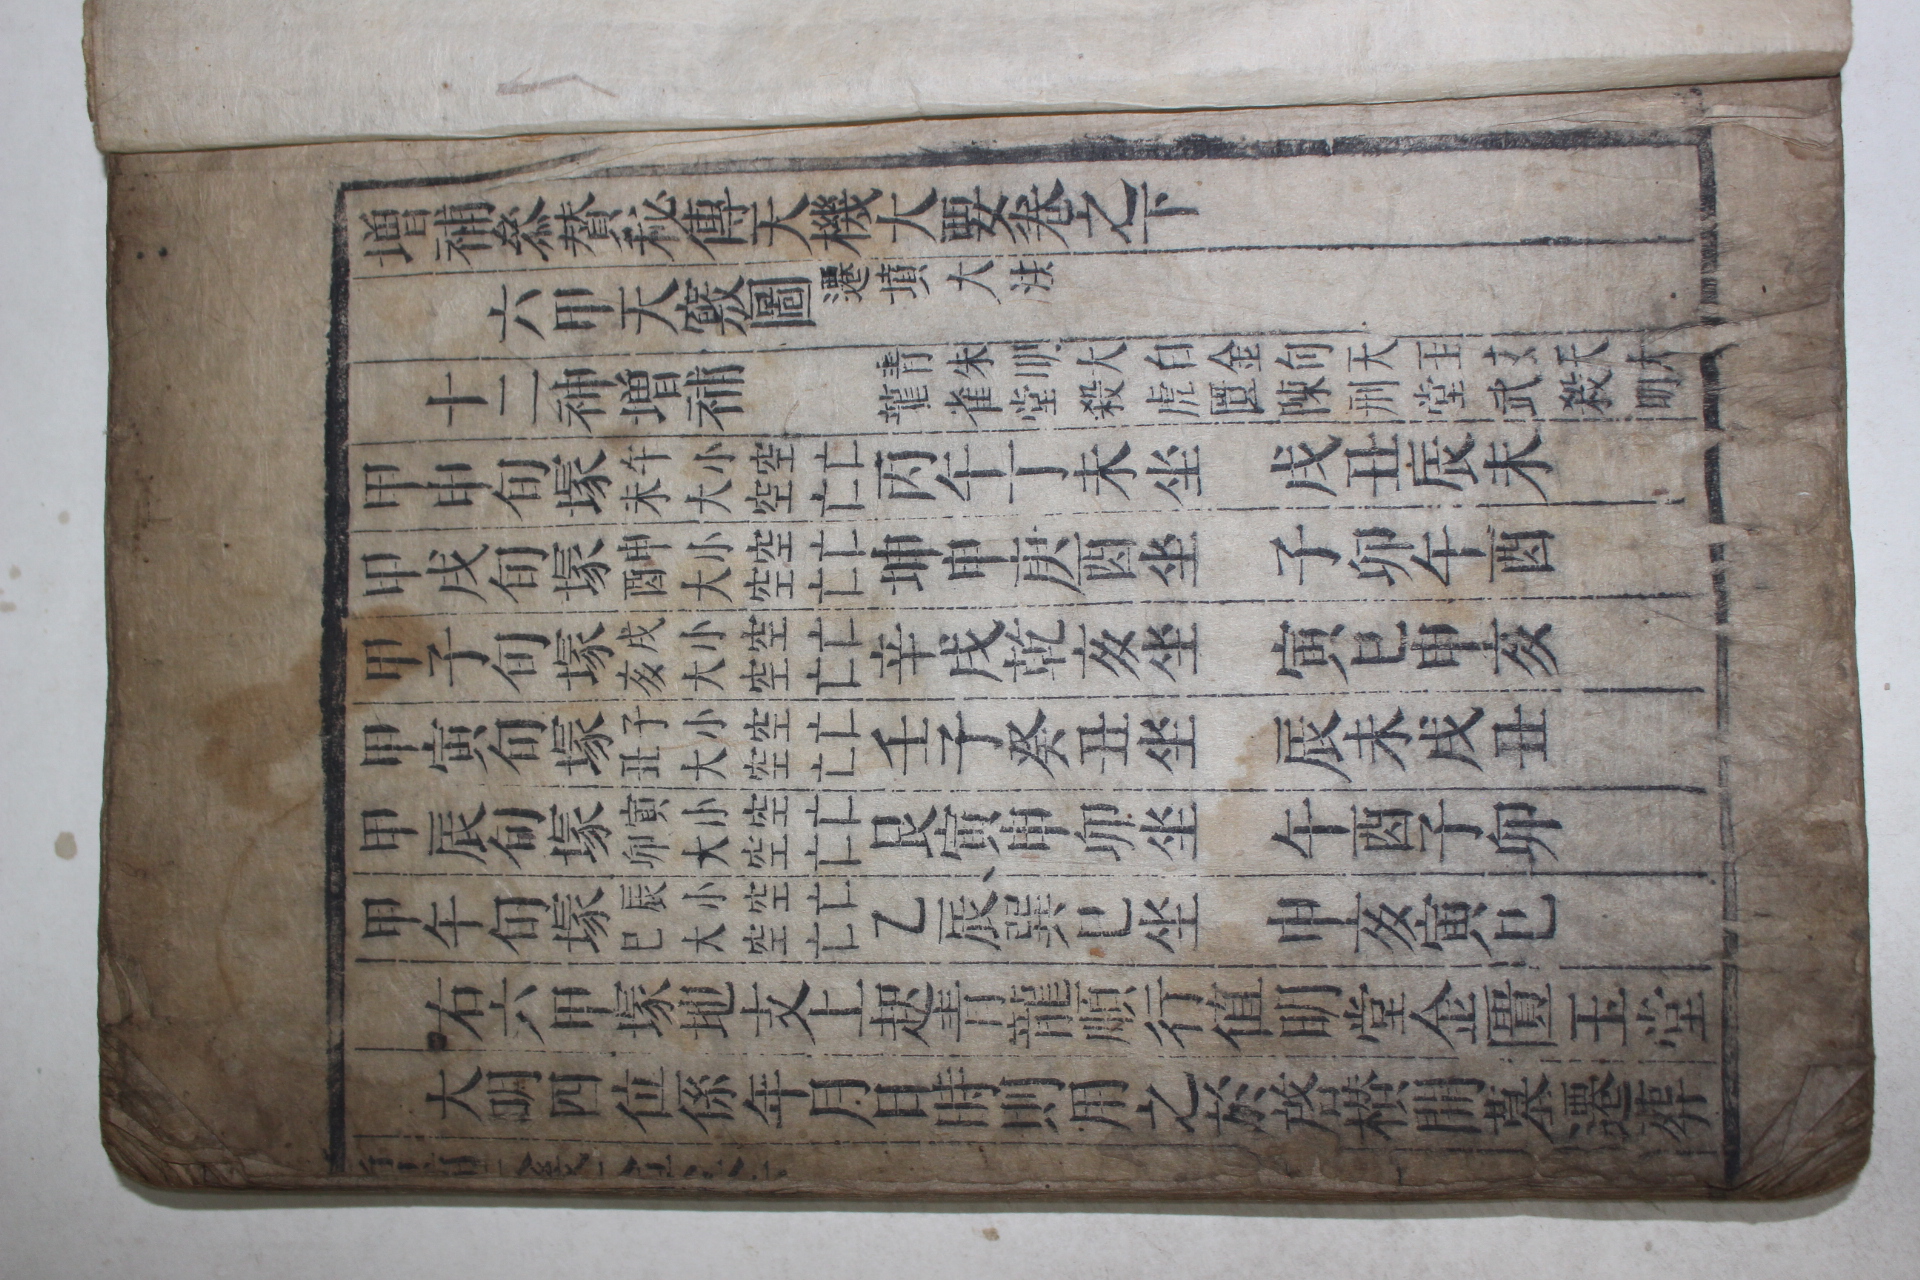 增補叅賛秘傳天機大要卷之下
六甲天竅圖 遷墳大法
十二神增補 青龍 朱雀 明堂 大殺 白虎 金匱 句陳 天刑 玉堂 玄武 天殺 大明
甲申旬塚 午未 小大 空空 亡亡 丙午丁未坐 戌丑辰未
甲戌旬塚 申酉 小大 空空 亡亡 坤申庚酉坐 子卯午酉
甲子旬塚 戌亥 小大 空空 亡亡 辛戌乾亥坐 寅巳申亥
甲寅旬塚 子丑 小大 空空 亡亡 壬子癸丑坐 辰未戌丑
甲辰旬塚 寅卯 小大 空空 亡亡 艮寅甲卯坐 午酉子卯
甲午旬塚 辰巳 小大 空空 亡亡 乙辰巽巳坐 申亥寅巳
右六甲塚地支上起青龍順行值明堂金匱玉堂
大明四位係年月日時則用之於啓欑開墓遷葬